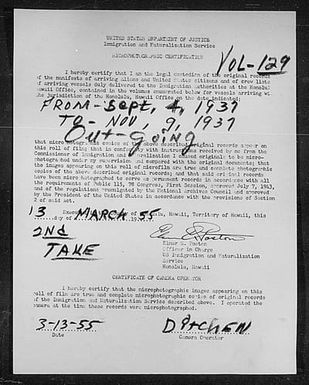 UNITED STATES DEPARTMENT OF JUSTICE
Immigration and Naturalization Service
MICROPHOTOGRAPHER CERTIFICATION
VOL-129
I hereby certify that I am the legal custodian of the original records
of the manifests of arriving aliens and United States citizens and of crew lists
of arriving vessels duly delivered to the Immigration Authorities at the Honolulu
Hawaii Office, contained in the volumes enumerated below for vessels arriving
the jurisdiction of the Honolulu, Hawaii Office on the date indicated:
FROM-Sept, 4, 1937
TO-NOV. 9, 1937
Out-going
that microphotographic copies of the above described original records appear on
this roll of film; that in conformity with instructions received by me from the
Commissioner of Immigration and Naturalization I caused the original to be micro-
photographed under my supervision and compared with the original documents; that
the images appearing on this roll of microfilm are true and exact photographic
copies of the above described original records; and that said original records
have been micro photographed to serve as permanent records in accordance with all
the requirements of Public 115, 78 Congress, First Session, approved July 7, 1943,
of the regulations promulgated by the National Archives Council and approved
by the President of the United States in accordance with the provisions of Section
2 of said act.
Honolulu, Hawaii, Territory of Hawaii, this
13 MARCH 55
day of
2ND
TAKE
Elmer E. Poston
Officer in Charge
US Immigration and Naturalization
Service
Honolulu, Hawaii
CERTIFICATE OF CAMERA OPERATOR
I hereby certify that the microphotographic images appearing on this
roll of film are true and complete microphotographic copies of original records
of the Immigration and Naturalization Service described above. I operated the
camera at the time these records were microphotographed.
3-13-55
DITCHEN
Date
Camera Operator